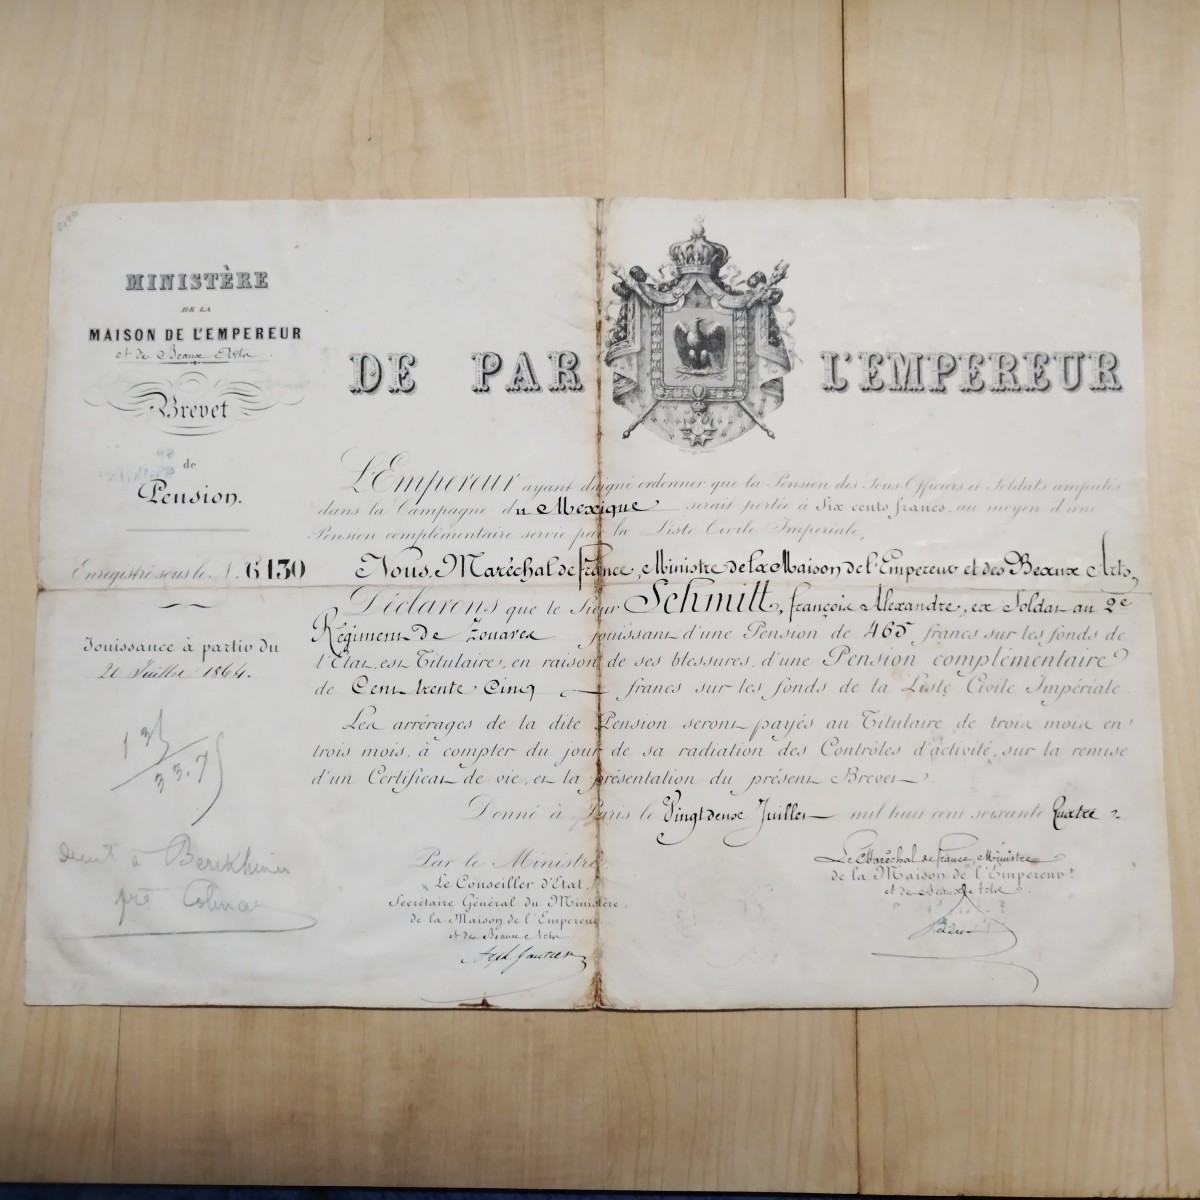 MINISTÈRE
DE LA
MAISON DE L'EMPEREUR
et des Beaux Arts
Brevet
de
Pension.
Enregistré sous le N. 6130
Jouissance à partir du
20 Juillet 1864.
135
33.75
à
près Colmar
DE PAR L'EMPEREUR
L'Empereur ayant daigné ordonner que la Pension des Sous-Officiers et Soldats amputés
dans la Campagne du Mexique serait portée à Six cents francs, au moyen d'une
Pension complémentaire servie par la Liste Civile Impériale,
Nous, Maréchal de France, Ministre de la Maison de l'Empereur et des Beaux Arts,
Déclarons que le Sieur Schmitt, françois Alexandre, ex Soldat au 2e
Régiment de Zouaves jouissant d'une Pension de 465 francs sur les fonds de
l'Etat, est Titulaire, en raison de ses blessures, d'une Pension complémentaire
de Cent trente Cinq francs sur les fonds de la Liste Civile Impériale.
Les arrérages de la dite Pension seront payés au Titulaire de trois mois en
trois mois, à compter du jour de sa radiation des Contrôles d'activité, sur la remise
d'un Certificat de vie, et la présentation du présent Brevet.
Donné à Paris le Vingt deux Juillet mil huit cent soixante Quatre.
Par le Ministre:
Le Conseiller d'Etat,
Secrétaire Général du Ministère
de la Maison de l'Empereur
et des Beaux Arts
Le Maréchal de France, Ministre
de la Maison de l'Empereur
et des Beaux Arts